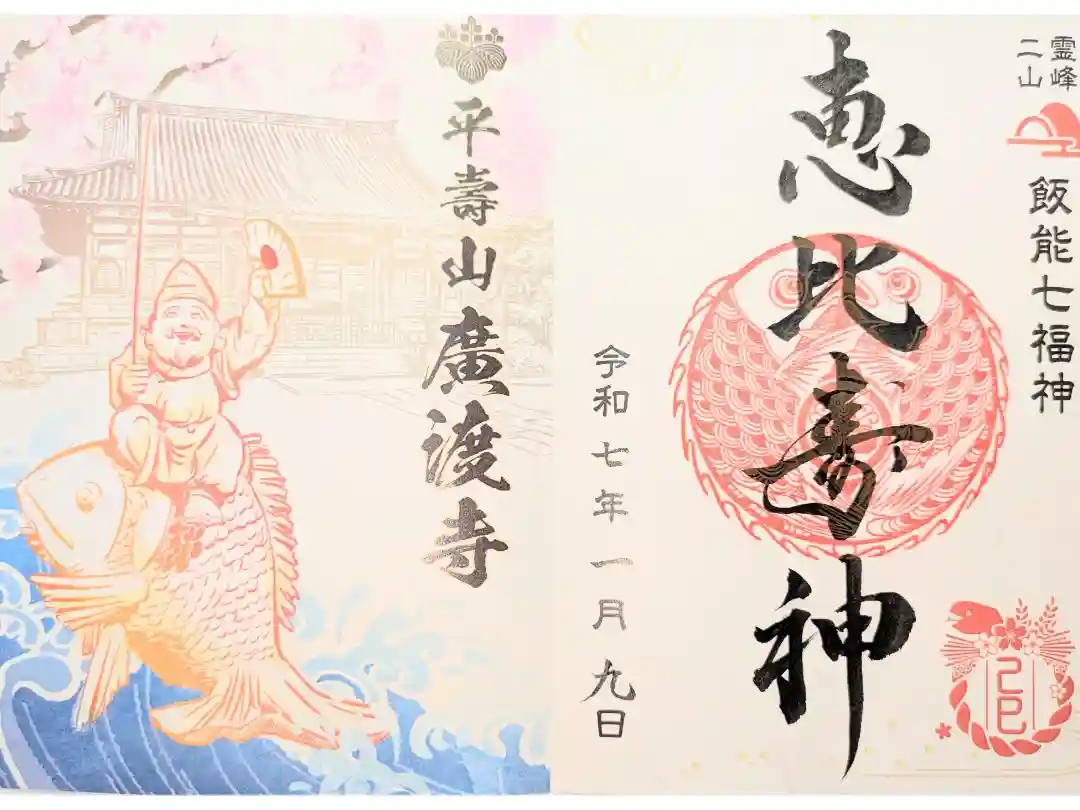 霊峰
二山
飯能七福神
恵比寿神
令和七年一月九日
平壽山廣渡寺
乙巳